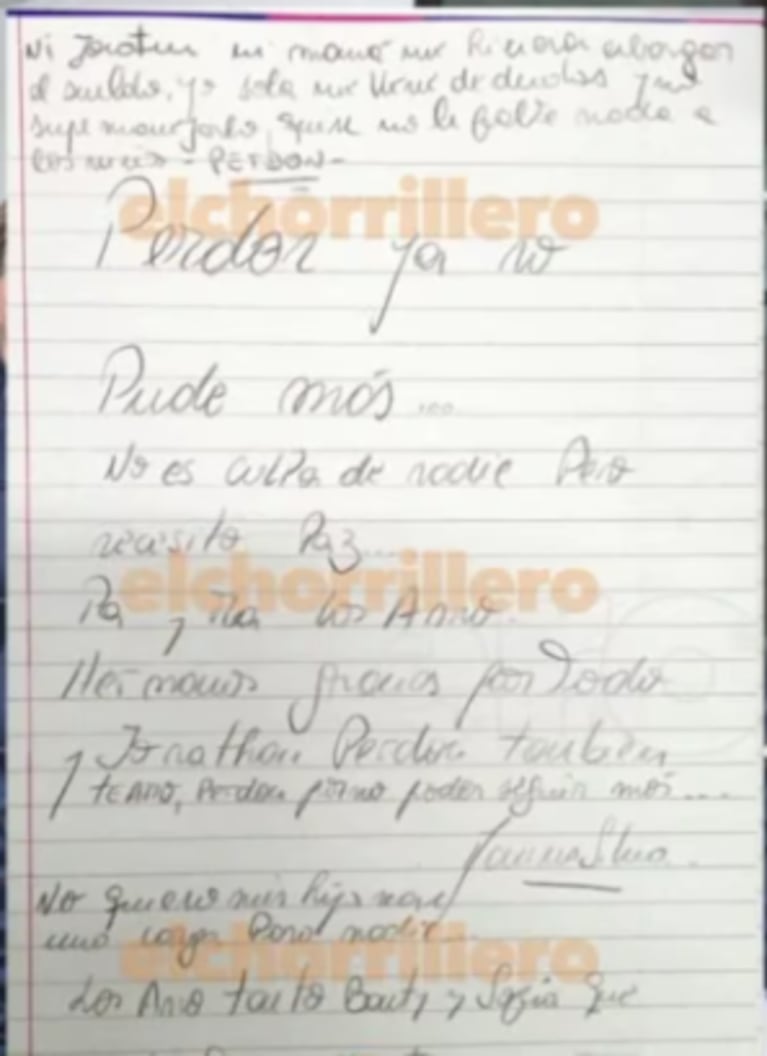 Ni Jonatan ni mamá me hicieron
el sueldo, yo sola me llené de deudas y no
supe manejarlo, quise no le falte nada a
los míos - PERDON -
elchorrillero
Perdon ya no
Pude más...
No es culpa de nadie Pero
necesito Paz...
elchorrillero
Pa y Ma los Amo.
Hermanos gracias por Todo
y Jonathan Perdon también
te amo, Perdon por no poder seguir más....
No quiero mis hijos
una carga Para nadie
elchorrillero
Los Amo tanto Bauti y Sofia que